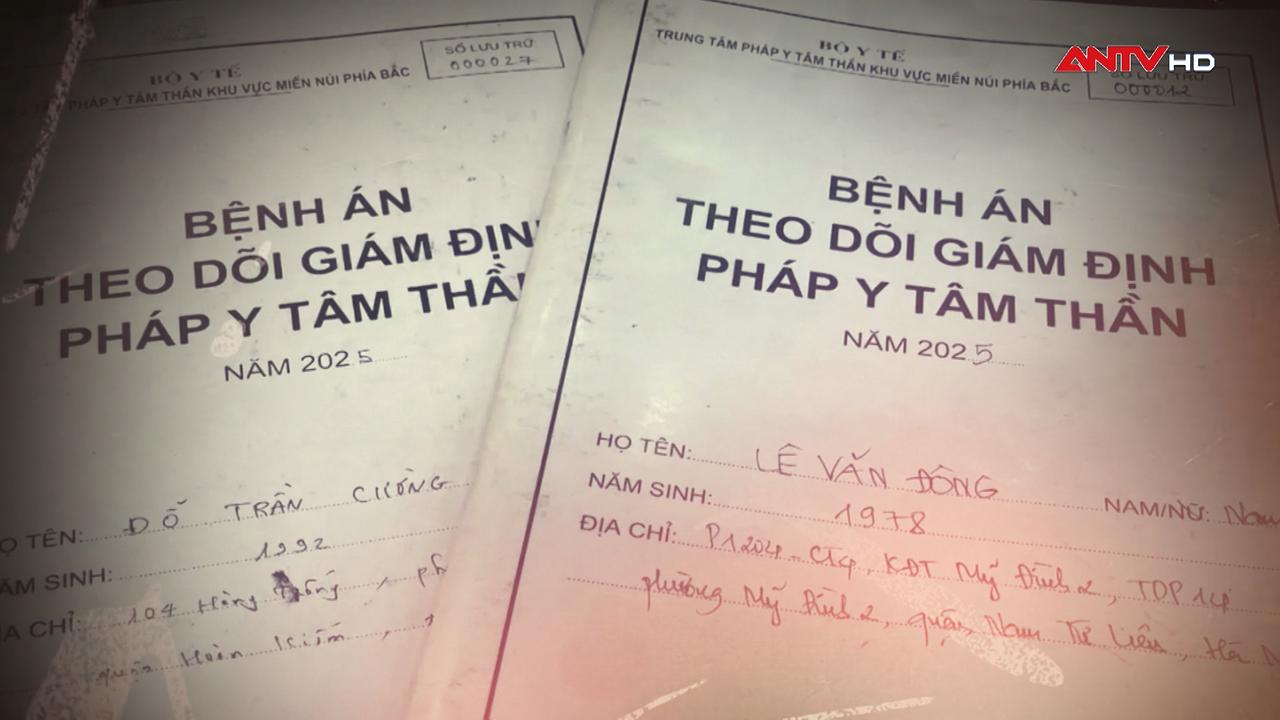 BỘ Y TẾ
PHÁP Y TÂM THẦN KHU VỰC MIỀN NÚI PHÍA BẮC
SỐ LƯU TRỮ
000027
BỆNH ÁN
THEO DÕI GIÁM ĐỊN
PHÁP Y TÂM THẦ
NĂM 2025
Ọ TÊN: ĐỖ TRẦN CHƯƠNG
ĂM SINH: 1992
ỊA CHỈ: 104 Hàng Trống, ph
quận Hoàn Kiếm,
BỘ Y TẾ
TRUNG TÂM PHÁP Y TÂM THẦN KHU VỰC MIỀN NÚI PHÍA BẮC
ANTV HD
SỐ LƯU TRỮ
000012
BỆNH ÁN
THEO DÕI GIÁM ĐỊNH
PHÁP Y TÂM THẦN
NĂM 2025
HỌ TÊN: LÊ VĂN ĐÔNG NAM/NỮ: Nam
NĂM SINH: 1978
ĐỊA CHỈ: P1204 - CT4, KĐT Mỹ Đình 2, TDP 14
phường Mỹ Đình 2, quận Nam Từ Liêm, Hà N